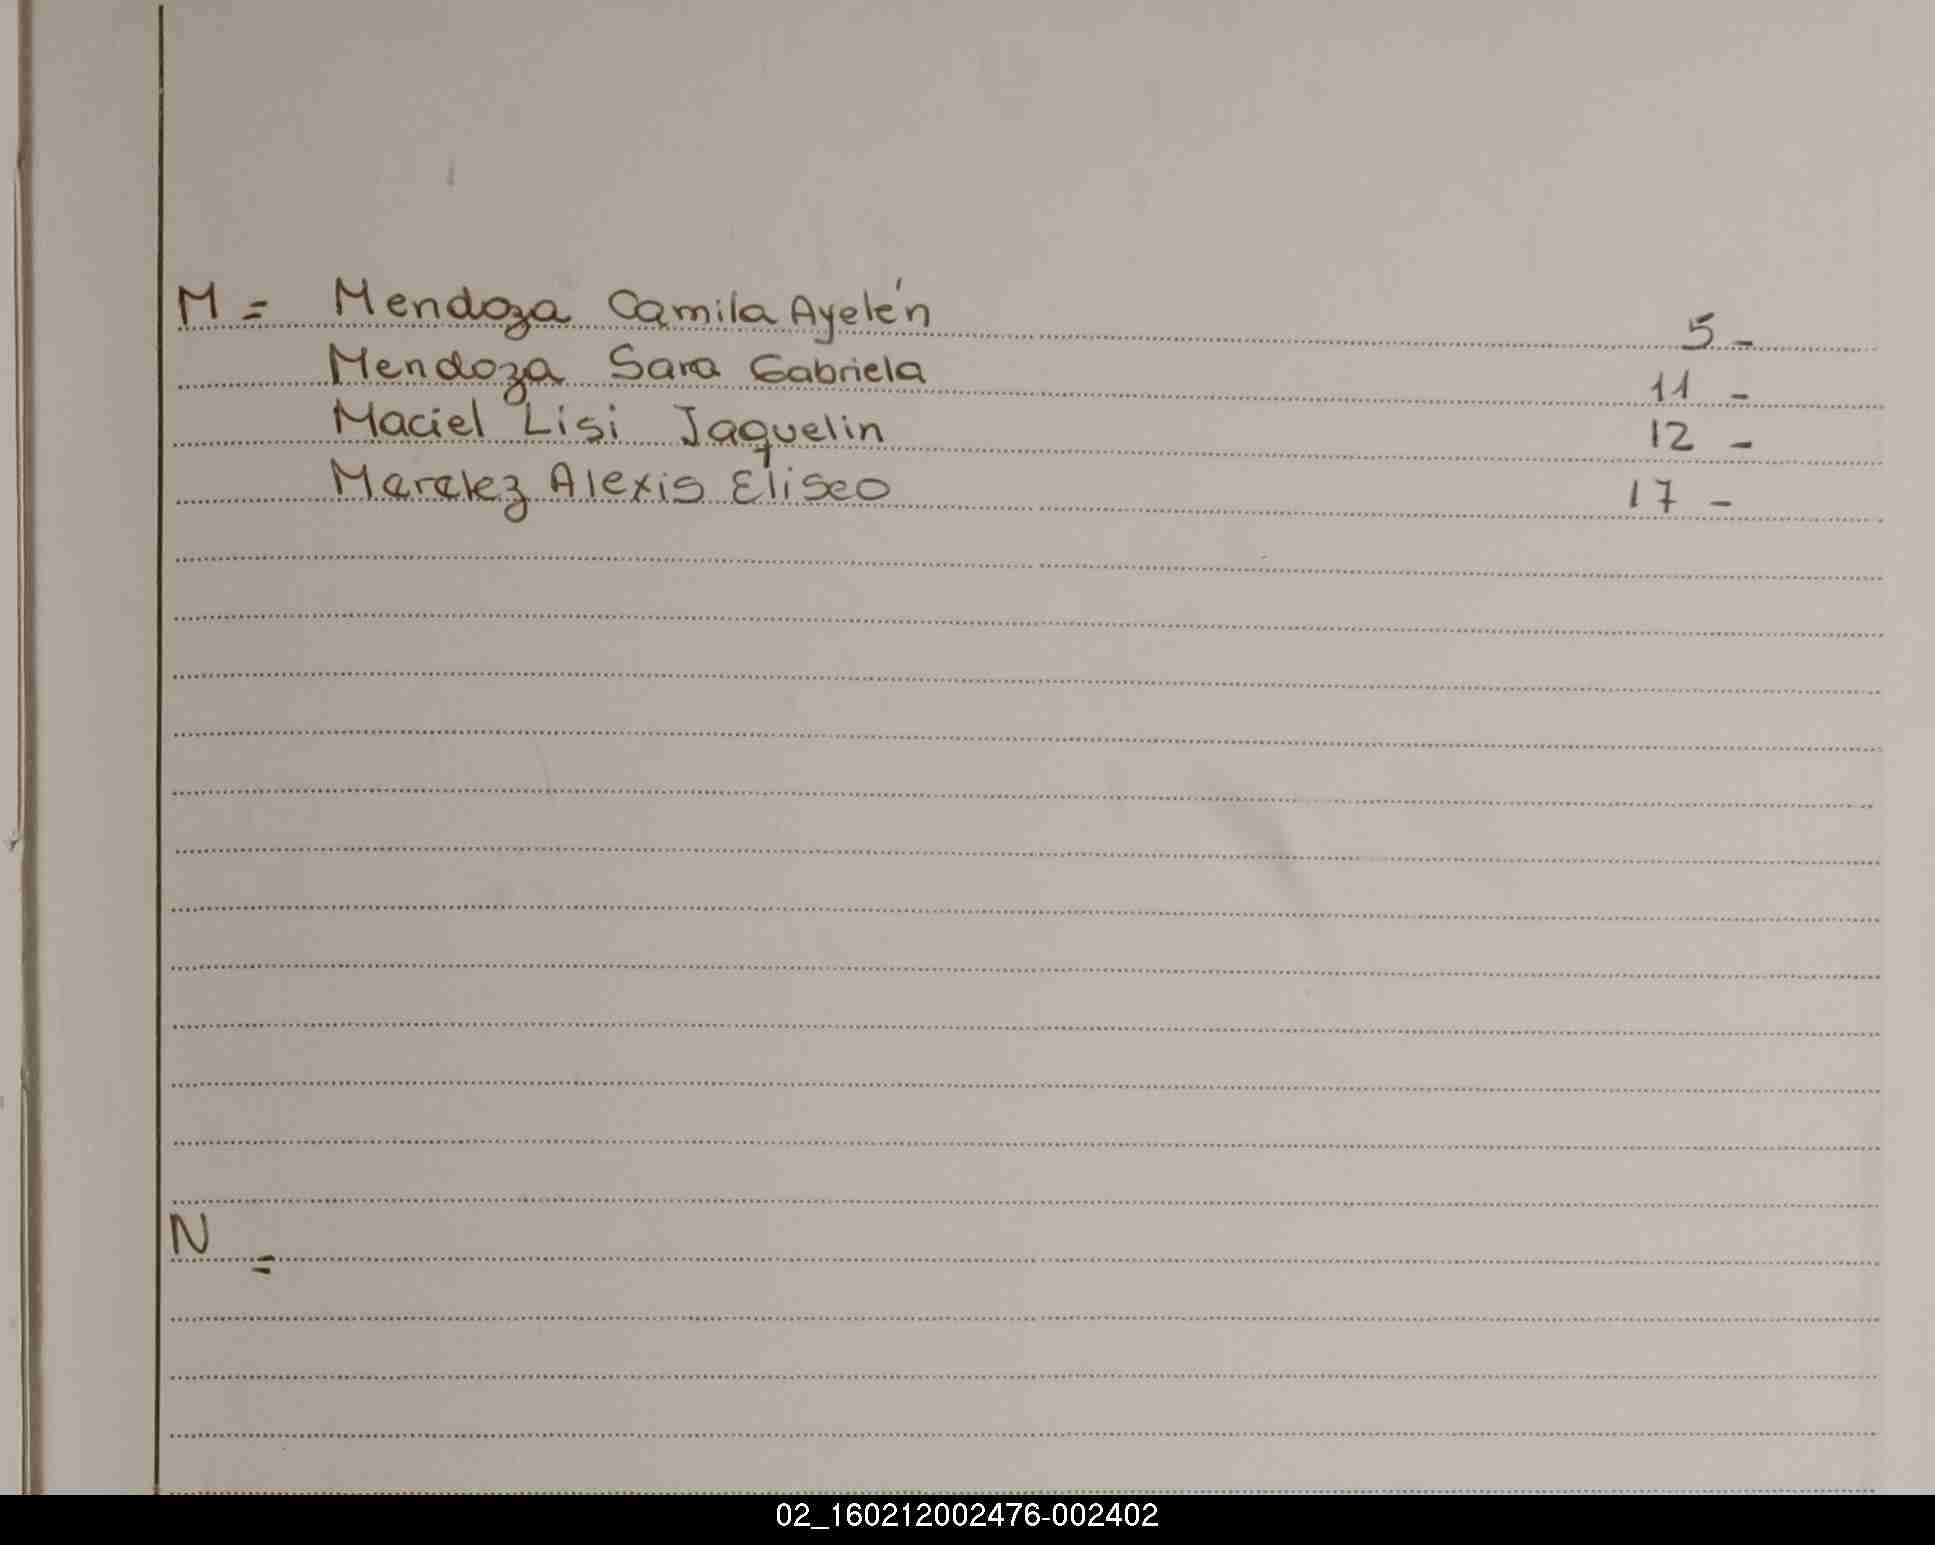 M = Mendoza Camila Ayelén 5 -
Mendoza Sara Gabriela 11 -
Maciel Lisi Jaquelin 12 -
Maralez Alexis Eliseo 17 -
N =
02_160212002476-002402